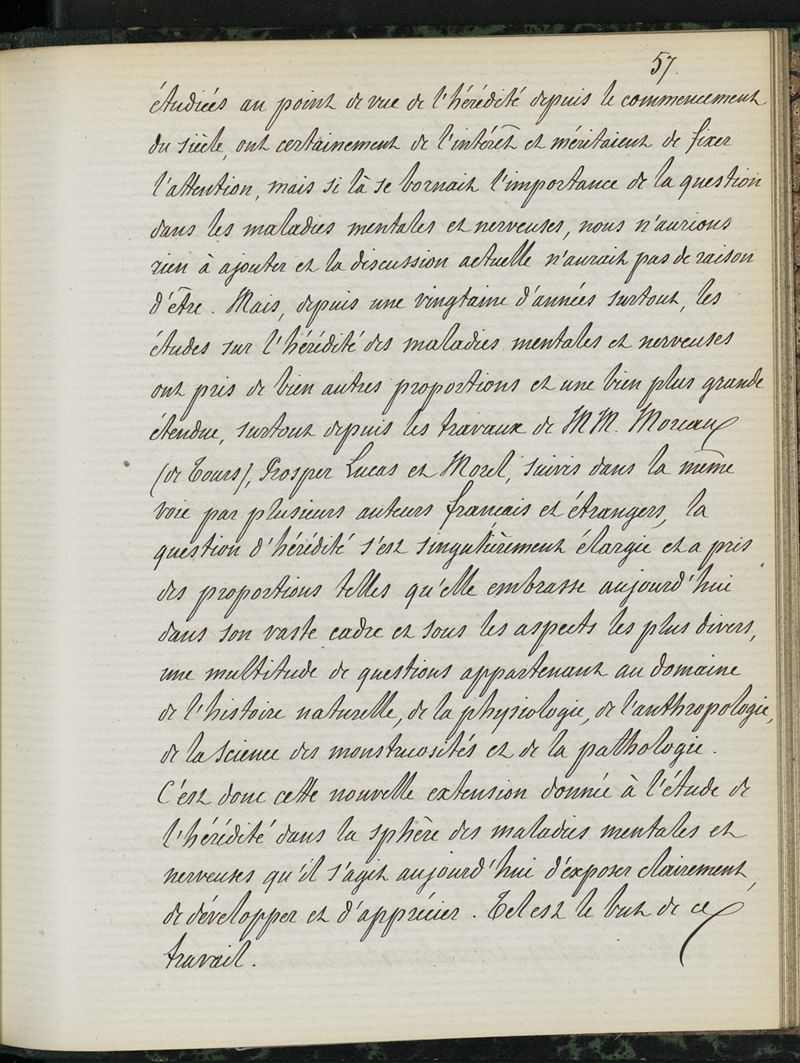 57.
étudiées au point de vue de l'hérédité depuis le commencement
du siècle, ont certainement de l'intérêt et méritaient de fixer
l'attention, mais si là se bornait l'importance de la question
dans les maladies mentales et nerveuses, nous n'aurions
rien à ajouter et la discussion actuelle n'aurait pas de raison
d'être. Mais, depuis une vingtaine d'années surtout, les
études sur l'hérédité des maladies mentales et nerveuses
ont pris de bien autres proportions et une bien plus grande
étendue, surtout depuis les travaux de MM. Moreau
(de Tours), Prosper Lucas et Morel, suivis dans la même
voie par plusieurs auteurs francais et étrangers, la
question d'hérédité s'est singulièrement élargie et a pris
des proportions telles qu'elle embrasse aujourd'hui
dans son vaste cadre et sous les aspects les plus divers,
une multitude de questions appartenant au domaine
de l'histoire naturelle, de la physiologie, de l'anthropologie,
de la science des monstruosités et de la pathologie.
C'est donc cette nouvelle extension donnée à l'étude de
l'hérédité dans la sphère des maladies mentales et
nerveuses qu'il s'agit aujourd'hui d'exposer clairement,
de développer et d'apprécier. Tel est le but de ce
travail.